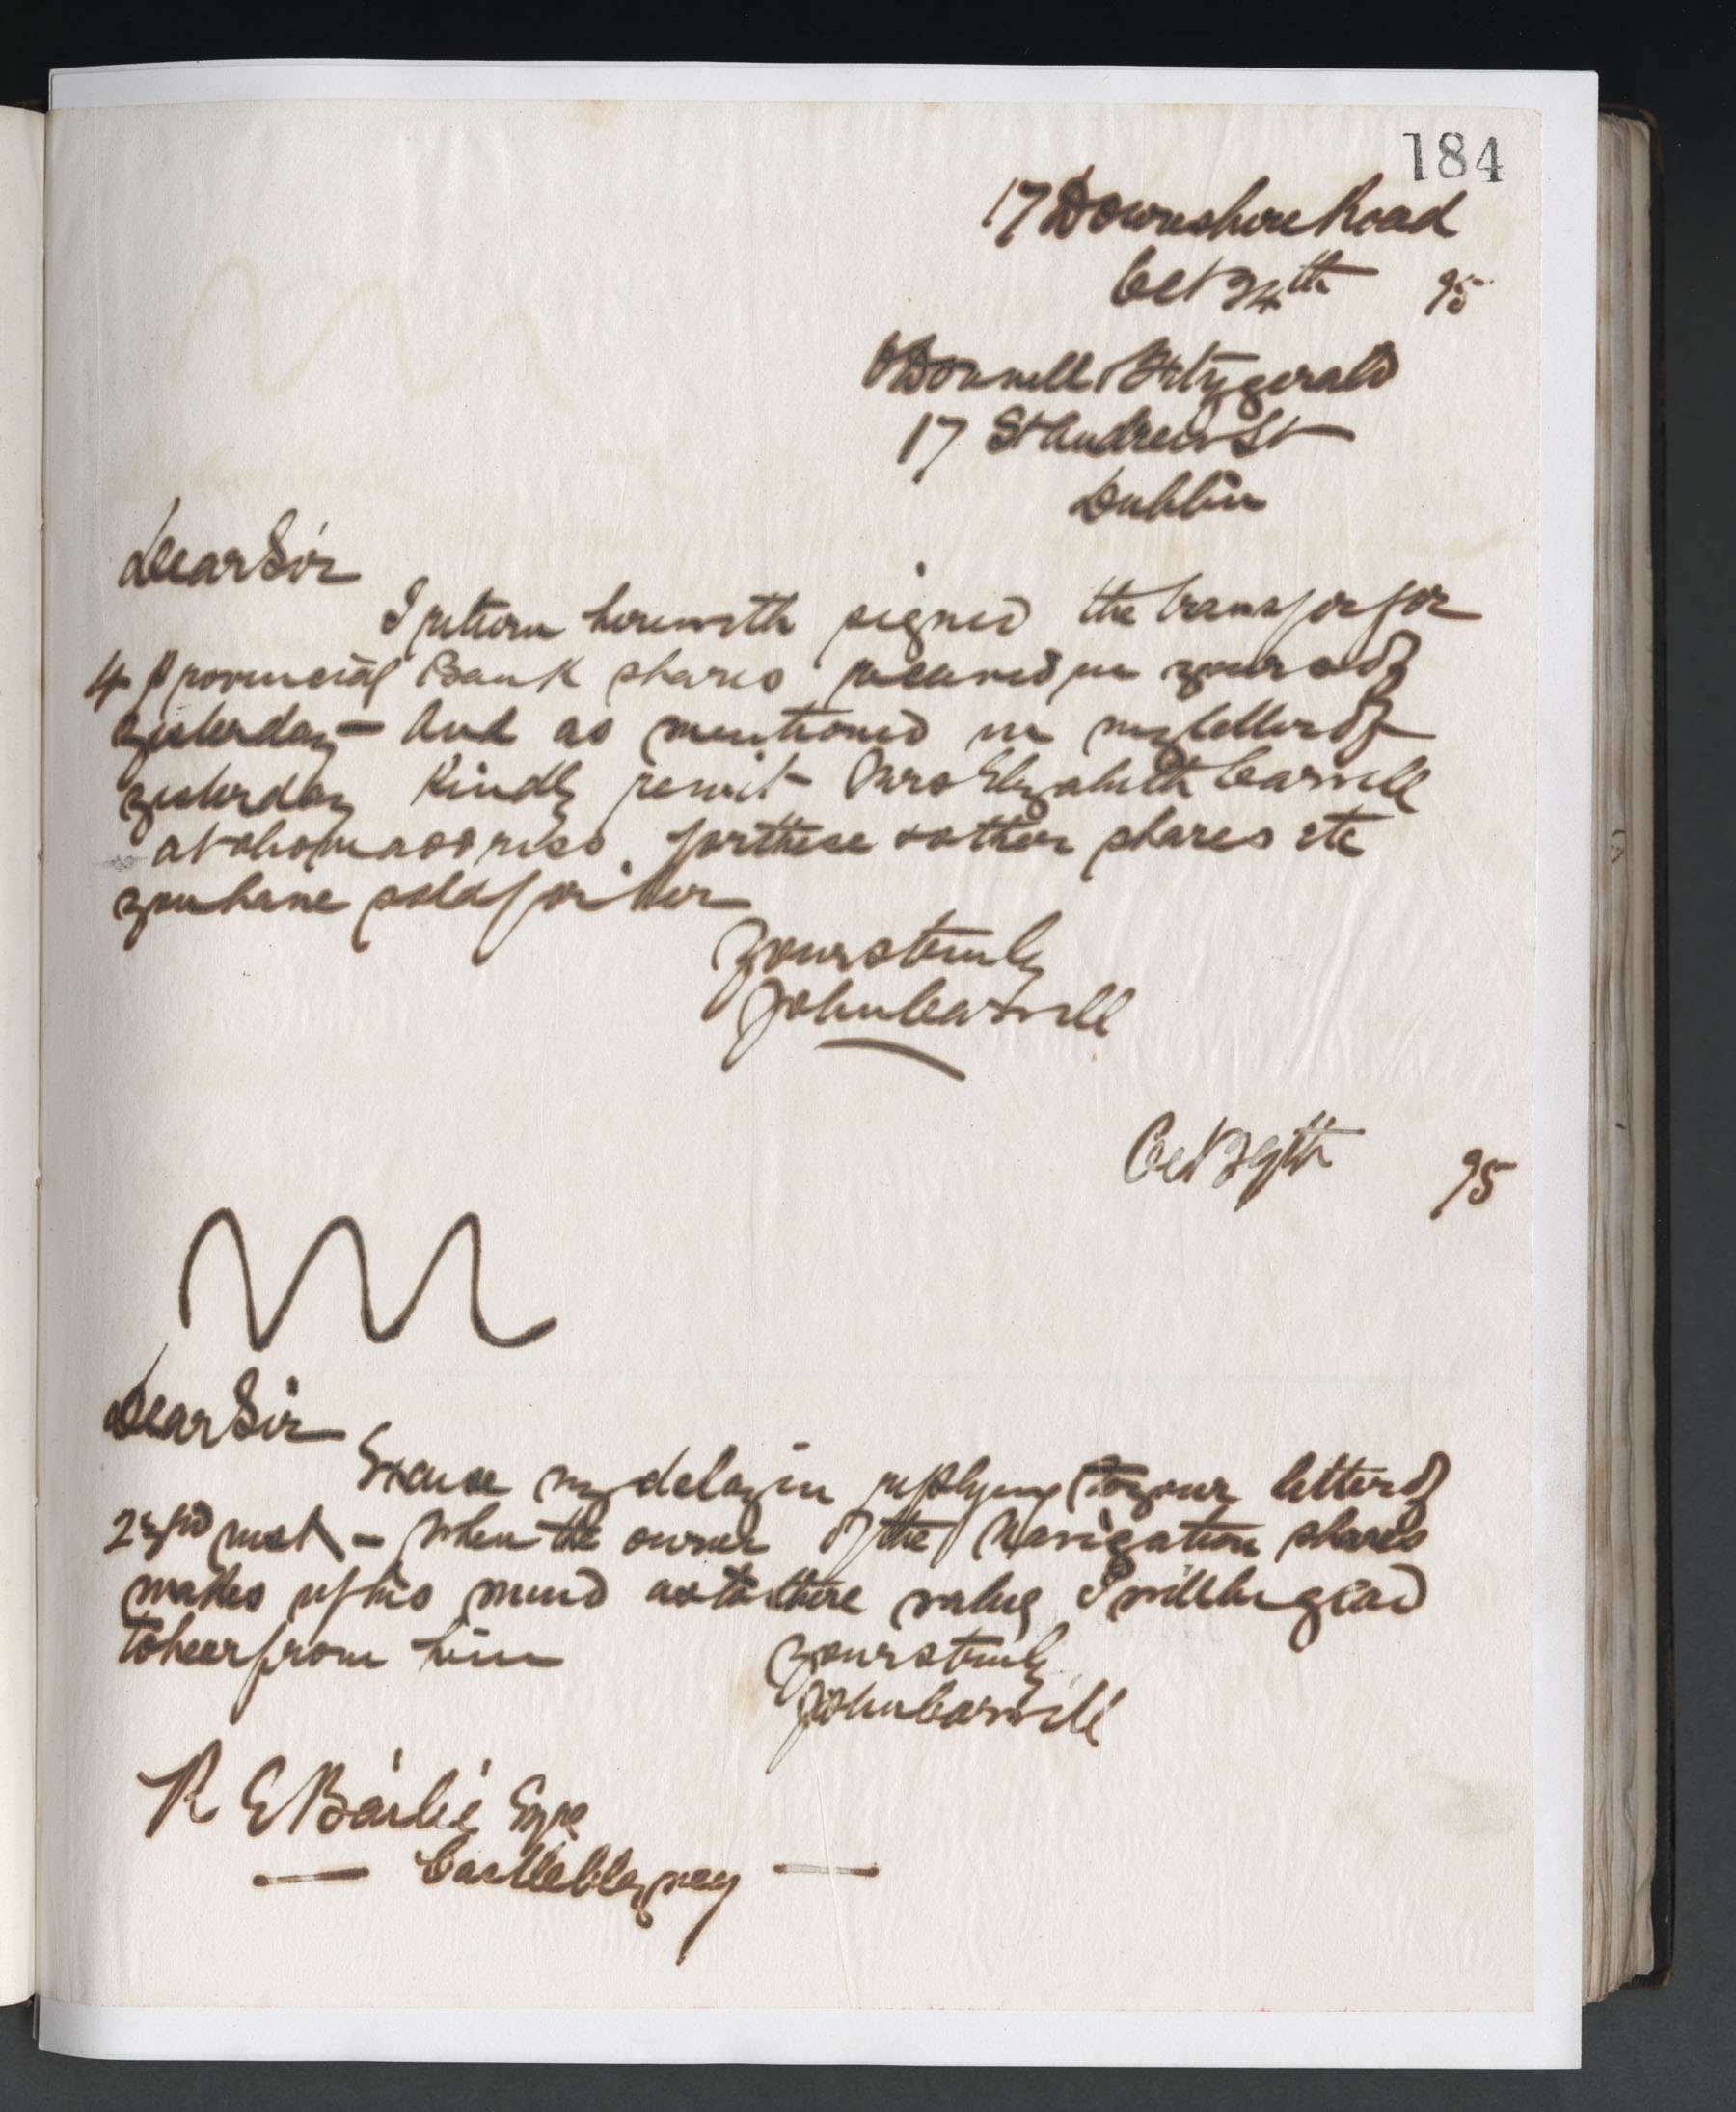 184
17 Downshire Road
Oct 24th 95
O'Donnell Fitzgerald
17 St Andrew St
Dublin
Dear Sir
I return herewith signed the transfer for
4 Provincial Bank shares received in yours of
yesterday - And as mentioned in my letter of
yesterday Kindly remit Mrs Elizabeth Carvill
at address for these & other shares etc
you have sold for her
Yours truly
John Carvill
Oct 29th 95
Dear Sir
Excuse my delay in replying to your letter of
22nd inst - When the owner of the Navigation shares
makes up his mind as to there value I will be glad
to hear from him
Yours truly
John Carvill
R E Bailie Esqre
— Castleblayney —